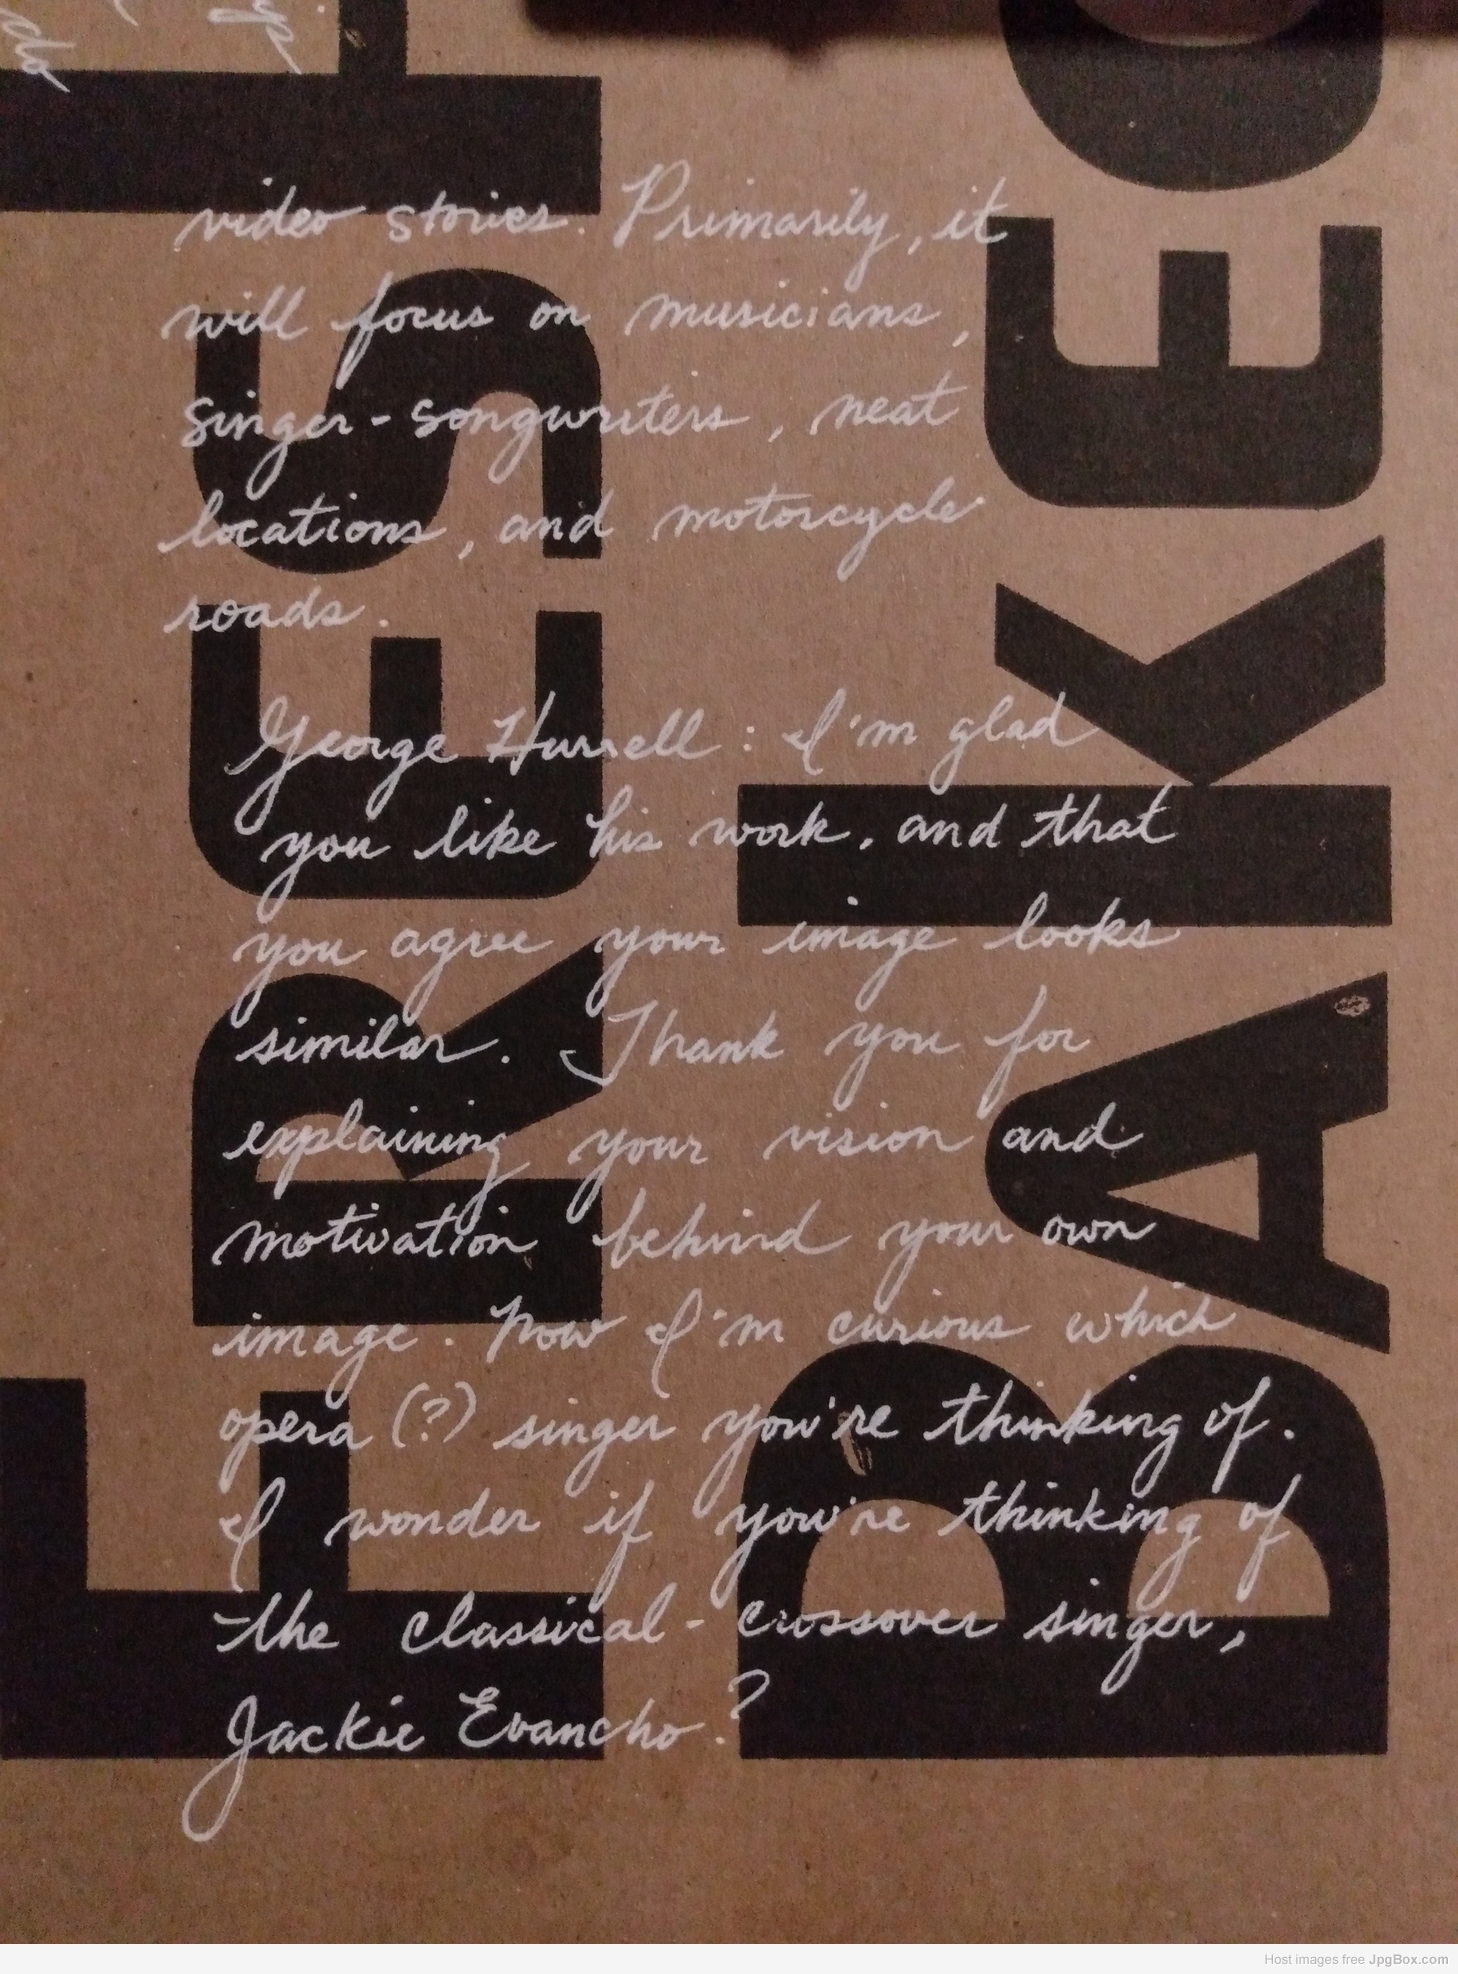 video stories. Primarily, it
will focus on musicians,
singer-songwriters, neat
locations, and motorcycle
roads.
George Hurrell: I'm glad
you like his work, and that
you agree your image looks
similar. Thank you for
explaining your vision and
motivation behind your own
image. Now I'm curious which
opera (?) singer you're thinking of.
I wonder if you're thinking of
the classical-crossover singer,
Jackie Evancho?
FRES
BAKE
Host images free JpgBox.com